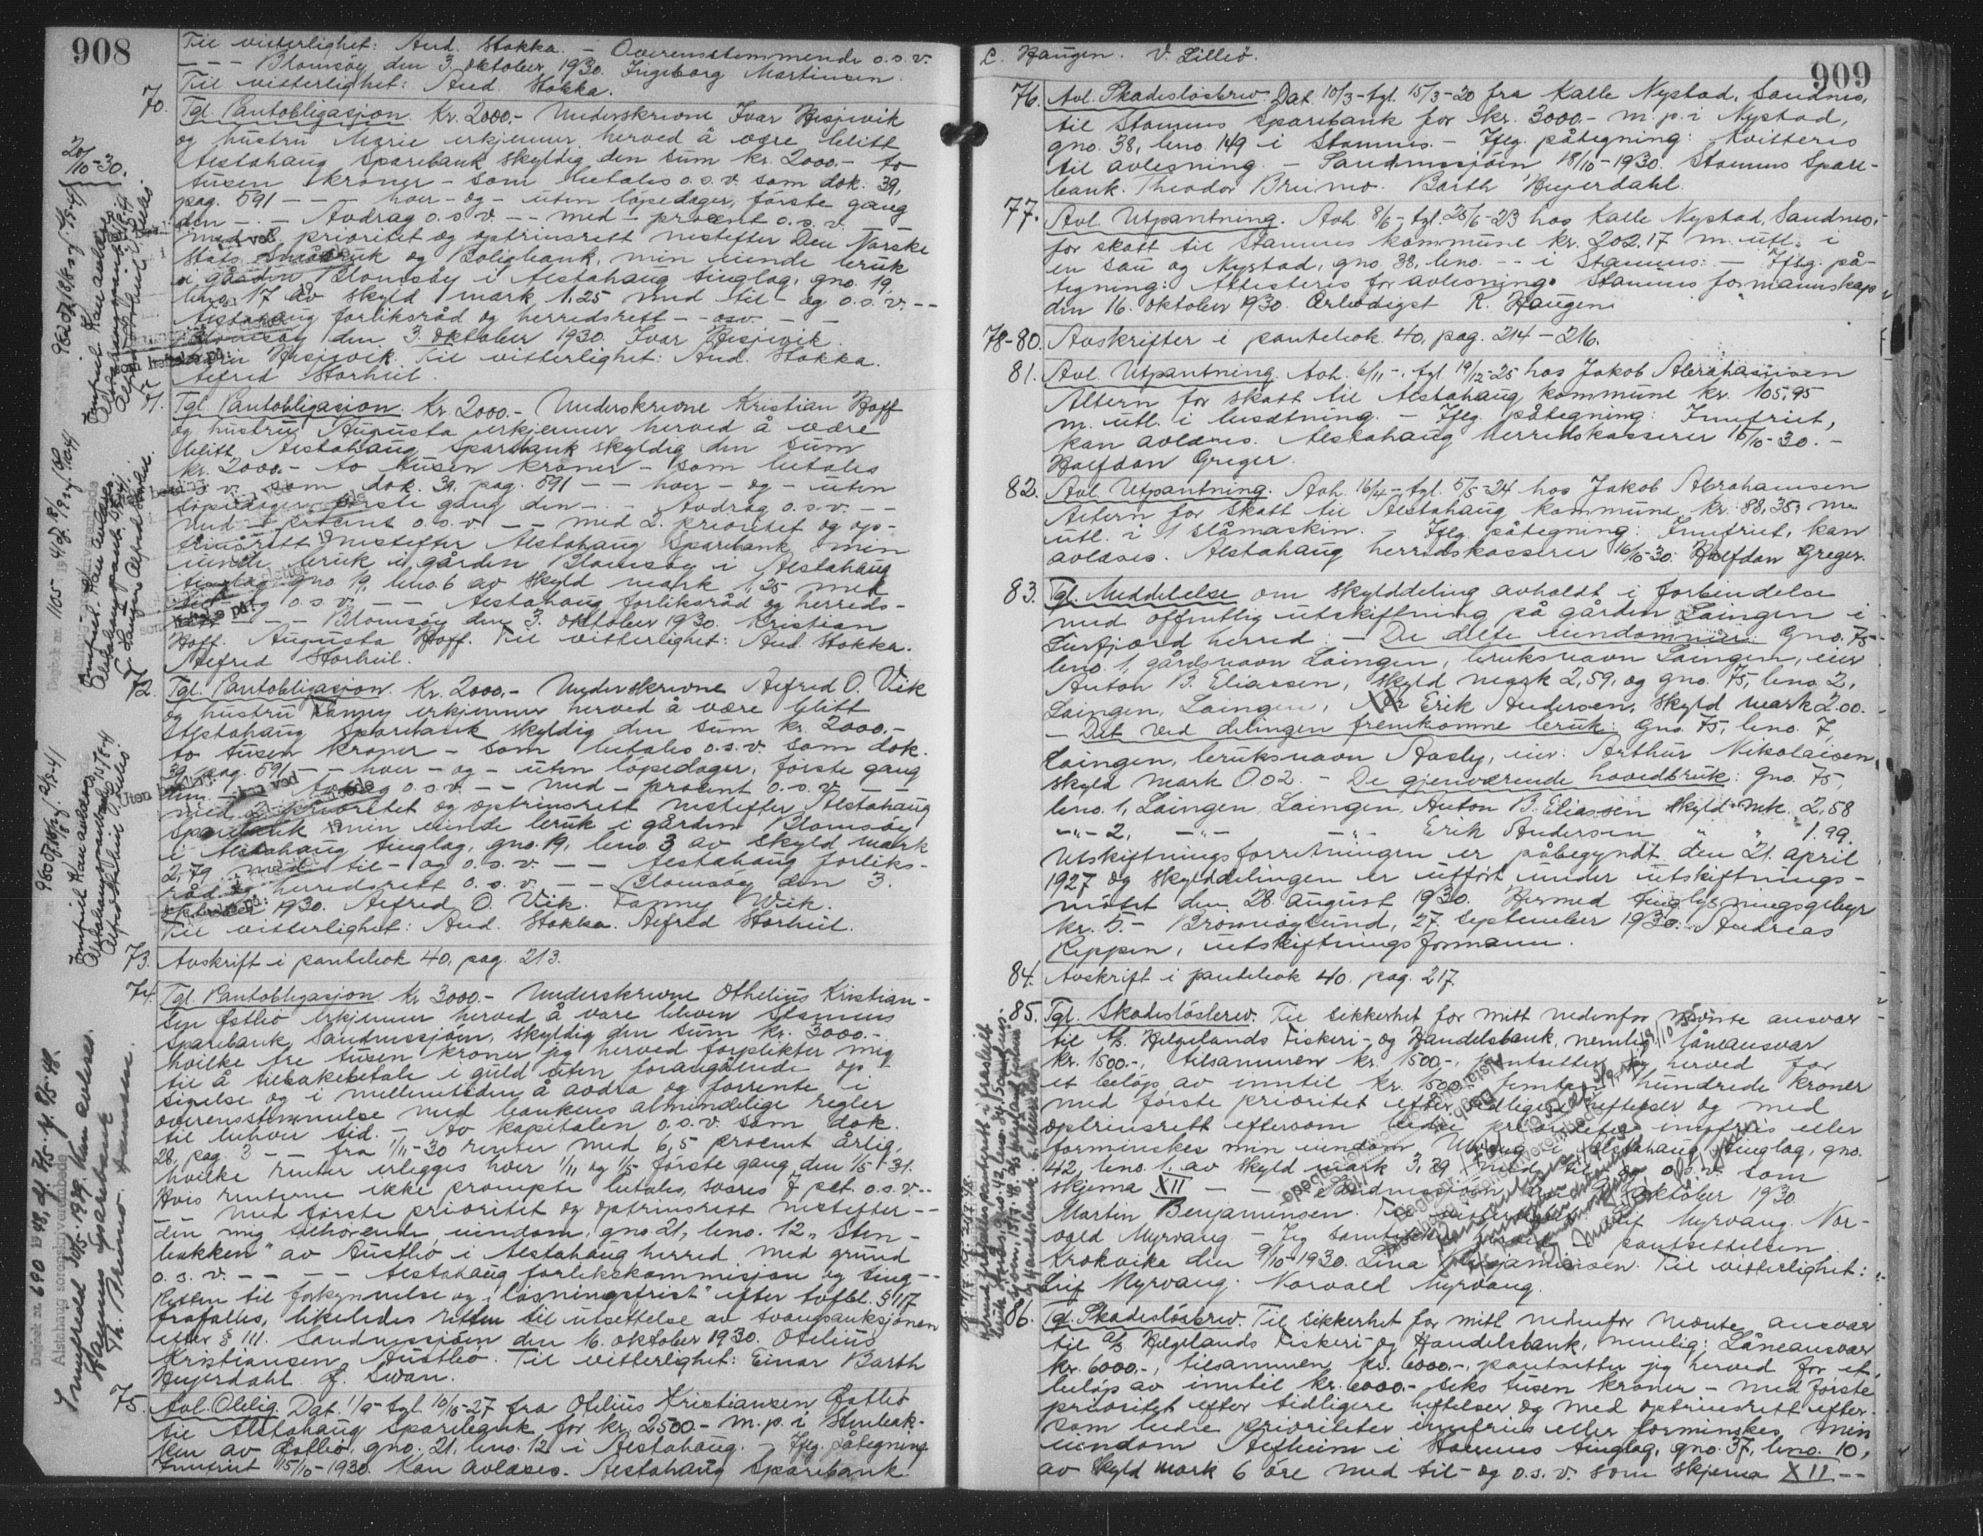 908
Til vitterlighet: And. Stokka. – Overensstemmende o.s.v.
– – – Blomsöy den 3. oktober 1930. Ingeborg Martinsen.
Til vitterlighet: And. Stokka.
70. Tgl. Pantobligasjon. Kr. 2000.- Underskrevne Ivar Hesjevik
og hustru Marie erkjenner herved å være blitt
Alstahaug Sparebank skyldig den sum kr. 2000.- to
tusen kroner – som betales o.s.v. som dok. 39,
pag. 591 – – – hver – og – uten löpedager, förste gang
den – – – Avdrag o.s.v. – – med – procent o.s.v.
med 2. prioritet og optrinsrett nestefter Den Norske
Stats Småbruk og Boligbank, min eiende bruk
i gården Blomsöy i Alstahaug tinglag, gno. 19,
bno. 17 av skyld mark 1.25 med til – og o.s.v. – –
Alstahaug forliksråd og herredsrett – – osv. – –
Blomsöy den 3. oktober 1930. Ivar Hesjevik.
Hesjevik. Til vitterlighet: And. Stokka.
Alfred Storheil.
71. Tgl. Pantobligasjon. Kr. 2000.- Underskrevne Kristian Hoff
og hustru Augusta erkjenner herved å være
blitt Alstahaug Sparebank skyldig den sum
kr. 2000.- to tusen kroner – som betales
o.s.v. som dok. 39, pag. 591 – – hver – og – uten
löpedager, förste gang den – – Avdrag o.s.v. – –
med – procent o.s.v. – – med 2. prioritet og op-
trinsrett nestefter Alstahaug Sparebank min
eiende bruk i gården Blomsöy i Alstahaug
tinglag, gno. 19, bno. 6 av skyld mark 1,25 med
til – og o.s.v. – – Alstahaug forliksråd og herreds-
rett – – – Blomsöy den 3. oktober 1930. Kristian
Hoff. Augusta Hoff. Til vitterlighet: And. Stokka.
Alfred Storheil.
72. Tgl. Pantobligasjon. Kr. 2000.- Underskrevne Alfred O. Vik
og hustru Fanny erkjenner herved å være blitt
Alstahaug Sparebank skyldig den sum kr. 2000.-
to tusen kroner – som betales o.s.v. som dok.
39, pag. 591 – – hver – og – uten löpedager, förste gang
den – – Avdrag o.s.v. – – med – procent o.s.v. – –
med 2 prioritet og optrinsrett nestefter Alstahaug
Sparebank min eiende bruk i gården Blomsöy
i Alstahaug tinglag, gno. 19, bno. 3 av skyld mark
2,79 med til – og o.s.v. – – Alstahaug forliks-
råd og herredsrett o.s.v. – – Blomsöy den 3.
oktober 1930. Alfred O. Vik. Fanny Wiik.
Til vitterlighet: And. Stokka. Alfred Storheil.
73. Avskrift i pantebok 40, pag. 213.
74. Tgl. Pantobligasjon. Kr 3000.- Underskrevne Othelius Kristian-
sen Östbö erkjenner herved å være bleven Stamnes
Sparebank, Sandnessjöen, skyldig den sum kr. 3000.-
hvilke tre tusen kroner jeg herved forplikter mig
til å tilbakebetale i guld uten foregående op-
sigelse og i mellemtiden å avdra og forrente i
overensstemmelse med bankens almindelige regler
til enhver tid. – Av kapitalen o.s.v. som dok.
28, pag. 3 – – fra 1/11-30 renter med 6,5 procent årlig,
hvilke renter erlegges hver 1/11 og 1/5 förste gang den 1/5-31.
Hvis renterne ikke prompte betales, svares 7 pct. o.s.v. – –
– – med förste prioritet og optrinsrett nestefter – –
den mig tilhörende eiendom, gno. 21, bno. 12 „Sten-
bakken" av Austbö i Alstahaug herred med grund
o.s.v. – – – – Alstahaug forlikskommisjon og ting-
retten til forkynnelse og „lösningsfrist" efter tvfbl. § 117
frafalles, likeledes retten til utsettelse av tvangsauksjonen
efter § 111. Sandnessjöen den 16. oktober 1930. Otelius
Kristiansen Austbö. Til vitterlighet: Einar Barth
Heyerdahl. J. Swan.
75. Avl. Oblig. Dat. 1/9 – tgl. 10/10-27 fra Otelius Kristiansen Östbö
til Alstahaug Sparebank for kr. 2500.- m.p. i Stenbak-
ken av Östbö, gno. 21, bno. 12 i Alstahaug. – Iflg. påtegning
Innfriet 15/10-1930. Kan avlæses. Alstahaug Sparebank.
909
L. Haugen. V. Lilleö.
76. Avl. Skadeslösbrev. Dat. 10/3 – tgl. 15/3-20 fra Kalle Nystad, Sandnes,
til Stamnes Sparebank for kr. 3000.- m.p. i Nystad,
gno. 38, bno. 149 i Stamnes. – Iflg. påtegning: Kvitteres
til avlesning. – Sandnessjöen 18/10-1930. Stamnes Spare-
bank. Theodor Brunvo. Barth Heyerdahl.
77. Avl. Utpantning. Avh. 8/6, tgl. 25/6-23 hos Kalle Nystad, Sandnes,
for skatt til Stamnes kommune kr. 202.17 m. utl. i
en sau og Nystad, gno. 38, bno. – – i Stamnes: – Iflg. på-
tegning: Attesteres for avlesning. Stamnes formannskap
den 16. oktober 1930. Ærbödigst R. Haugen.
78-80. Avskrifter i pantebok 40, pag. 214 – 216.
81. Avl. Utpantning. Avh. 6/11 –, tgl. 19/12-25 hos Jakob Abrahamsen
Altern for skatt til Alstahaug kommune kr. 105,95
m. utl. i besætning. – Iflg. påtegning: Innfriet,
kan avlæses. Alstahaug herredskasserer 16/10-30. –
Halfdan Greger.
82. Avl. Utpantning. Avh. 16/4 – tgl. 5/5-24 hos Jakob Abrahamsen
Altern for skatt til Alstahaug kommune kr. 88,35, m.
utl. i 1 slåmaskin. – Iflg. påtegning: Innfriet, kan
avlæses. Alstahaug herredskasserer 16/10-30. Halfdan Greger.
83. Tgl. Meddelelse om skylddeling avholdt i forbindelse
med offentlig utskiftning på gården Laingen i
Leirfjord herred. – De delte eiendommer: Gno. 75
bno. 1, gårdsnavn Laingen, bruksnavn Laingen, eier
Anton B. Eliassen, skyld mark 2,59, og gno. 75, bno. 2,
Laingen, Laingen, Erik Andersen, skyld mark 2.00.
– Det ved delingen fremkomne bruk: Gno. 75, bno. 7,
Laingen, bruksnavn Aasly, eier: Arthur Nikolaisen,
skyld mark 0.02. – De gjenværende hovedbruk: Gno. 75,
bno. 1, Laingen, Laingen, Anton B. Eliassen skyld mk. 2,58
–"– 2, –"– –"– Erik Andersen " " 1.99.
Utskiftningsforretningen er påbegyndt den 21. april
1927 og skylddelingen er utfört under utskiftnings-
mötet den 28. august 1930. Hermed tinglysningsgebyr
kr. 5.- Brönnöysund, 27. september 1930. Andreas
Reppen, utskiftningsformann.
84. Avskrift i pantebok 40. pag. 217.
85. Tgl. Skadeslösbrev. Til sikkerhet for mitt nedenfor nevnte ansvar
til A/S Helgelands Fiskeri- og Handelsbank, nemlig låneansvar
kr. 1500.-, tilsammen kr. 1500.-, pantsetter jeg herved for
et belöp av inntil kr. 1500.- femten hundrede kroner
med förste prioritet efter tidligere heftelser og med
optrinsrett eftersom bedre prioriteter innfries eller
forminskes min eiendom i Alstahaug tinglag, gno.
42, bno. 1, av skyld mark 3,89 med til – og o.s.v. som
skjema XII – – – Sandnessjöen den 9. oktober 1930
Martin Benjaminsen. Til vitterlighet: Leif Myrvang. Nor-
vald Myrvang – Jeg samtykker i pantsettelsen
Krokvika den 9/10-1930. Lina Benjaminsen. Til vitterlighet:
Leif Myrvang. Norvald Myrvang.
86. Tgl. Skadeslösbrev. Til sikkerhet for mitt nedenfor nevnte ansvar
til A/S Helgelands Fiskeri- og Handelsbank, nemlig: Låneansvar
kr. 6000.-, tilsammen kr. 6000.-, pantsetter jeg herved for et
belöp av inntil kr. 6000.- seks tusen kroner – med förste
prioritet efter tidligere heftelser og med optrinsrett efter-
som bedre prioriteter innfries eller forminskes min
eiendom Alfheim i Stamnes tinglag, gno. 37, bno. 10,
av skyld mark 6 öre med til – og o.s.v. som skjema XII – –